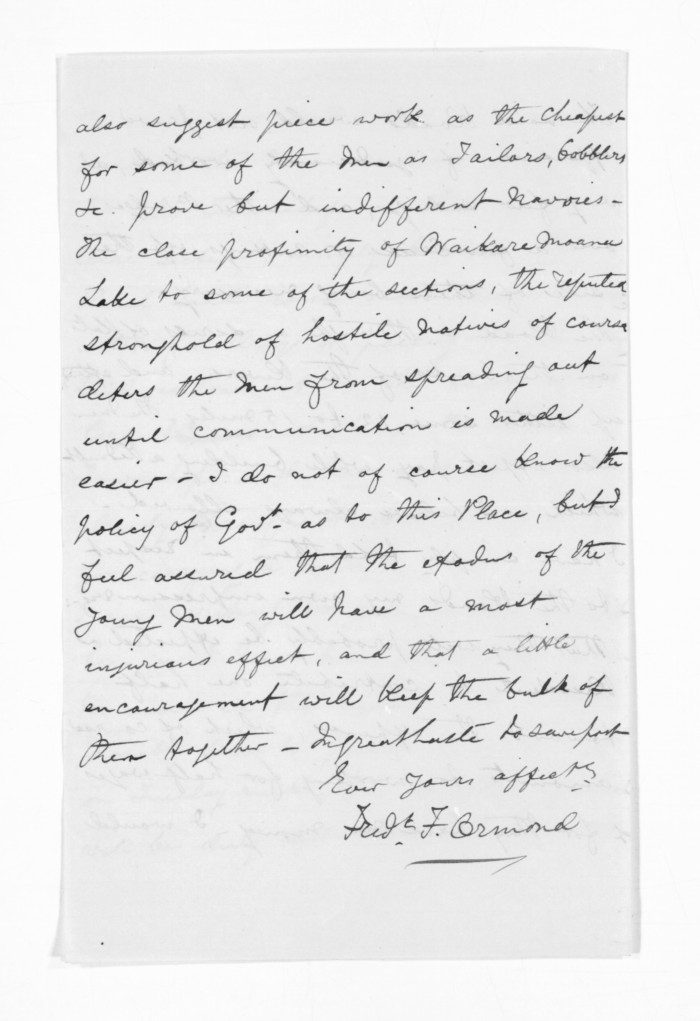 also suggest piece work as the cheapest
for some of the Men as Tailors, Cobblers
&c. prove but indifferent Navvies -
The close proximity of Waikare Moana
Lake to some of the sections, the reputed
stronghold of hostile Natives of course
deters the Men from spreading out
until communication is made
easier - I do not of course know the
policy of Govt. as to this Place, but I
feel assured that the exodus of the
young Men will have a most
injurious effect, and that a little
encouragement will keep the bulk of
them together - In great haste to save post
Ever yours affectly
Fredk. F. Ormond